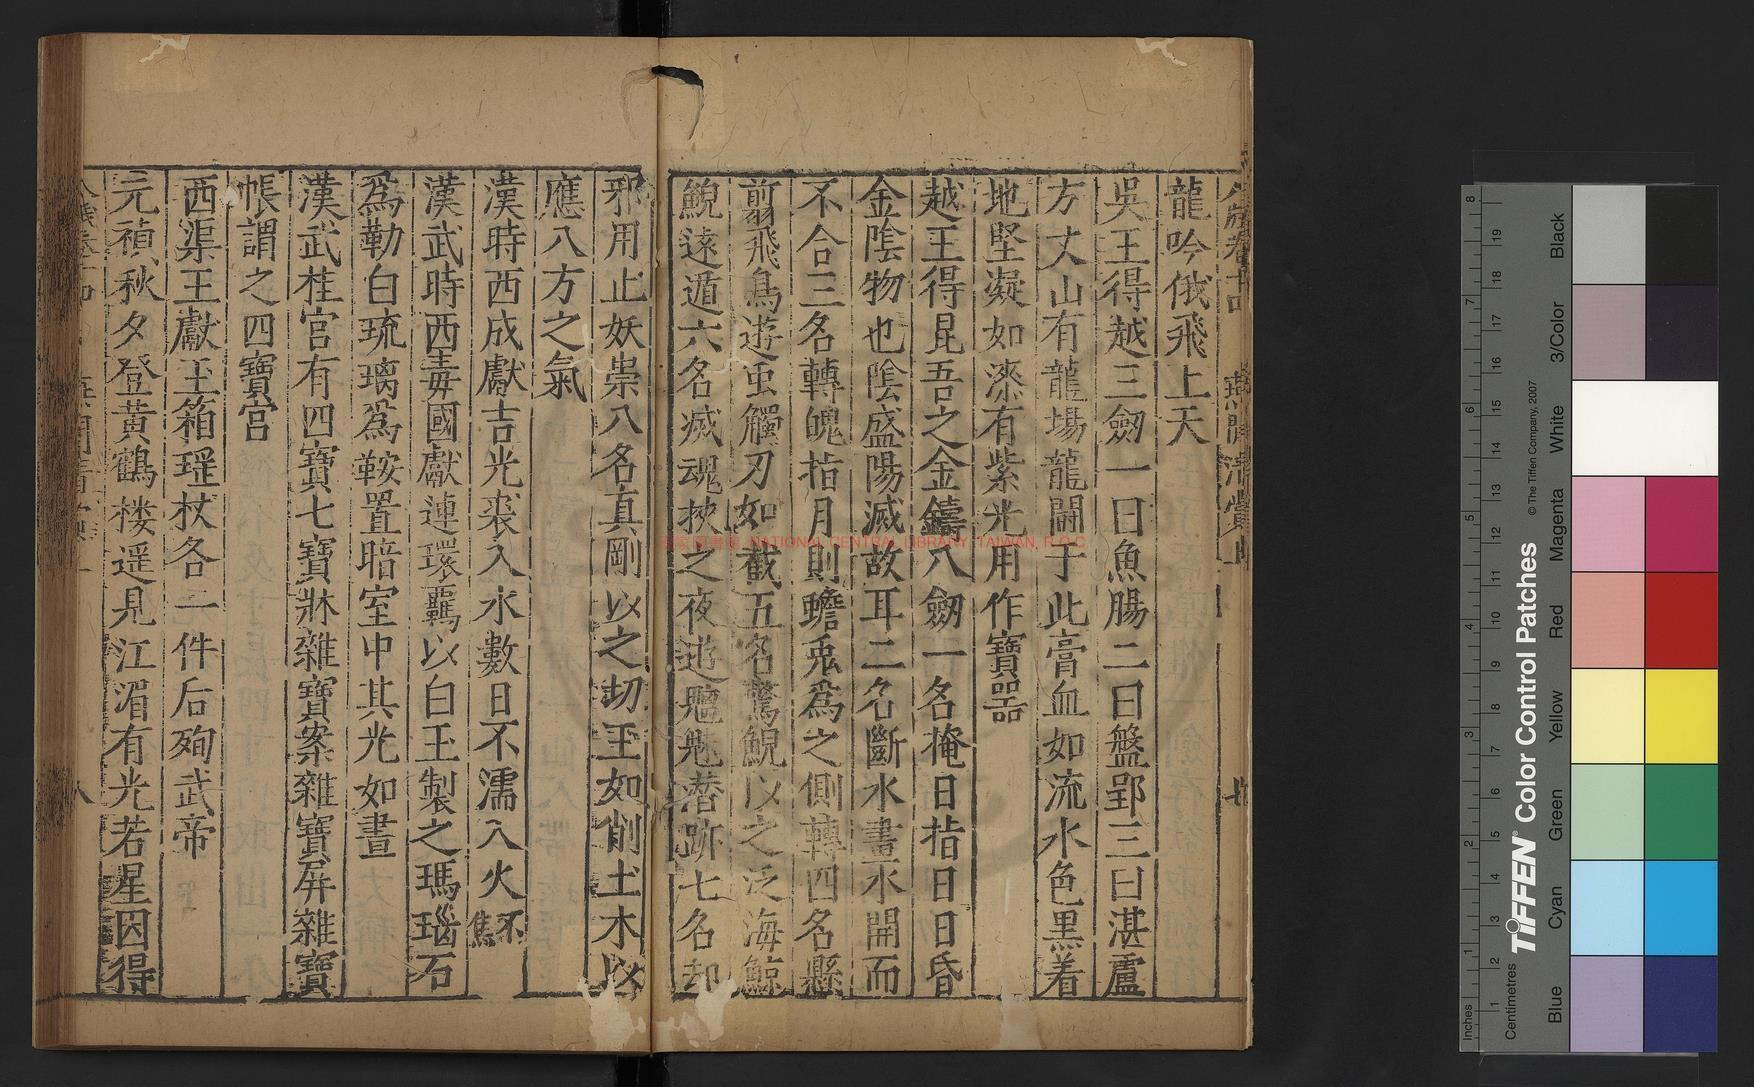 龍吟俄飛上天
吳王得越三劒一曰魚腸二曰盤郢三曰湛盧
方丈山有龍場龍鬪于此膏血如流水色黑着
地堅凝如漆有紫光用作寶噐
越王得昆吾之金鑄八劒一名掩日指日日昏
金陰物也陰盛陽滅故耳二名斷水畫水開而
不合三名轉魄指月則蟾兎爲之側轉四名懸
翦飛鳥遊虫觸刃如截五名驚鯢以之泛海鯨
鯢遠遁六名滅魂挾之夜逰魍魅潜跡七名却
邪用止妖祟八名真剛以之切玉如削土木以
應八方之氣
漢時西成獻吉光裘入水數日不濡入火不焦
漢武時西毒國獻連環覊以白玉製之瑪瑙石
爲勒白琉璃爲鞍置暗室中其光如晝
漢武桂宫有四寶七寶牀雜寶案雜寶屏雜寶
帳謂之四寶宫
西渠王獻玉箱瑶杖各一件后殉武帝
元禎秋夕登黄鶴楼遥見江湄有光若星因得
八
NATIONAL CENTRAL LIBRARY, TAIWAN, R.O.C
Inches
Centimetres
TIFFEN® Color Control Patches
© The Tiffen Company, 2007
Blue
Cyan
Green
Yellow
Red
Magenta
White
3/Color
Black